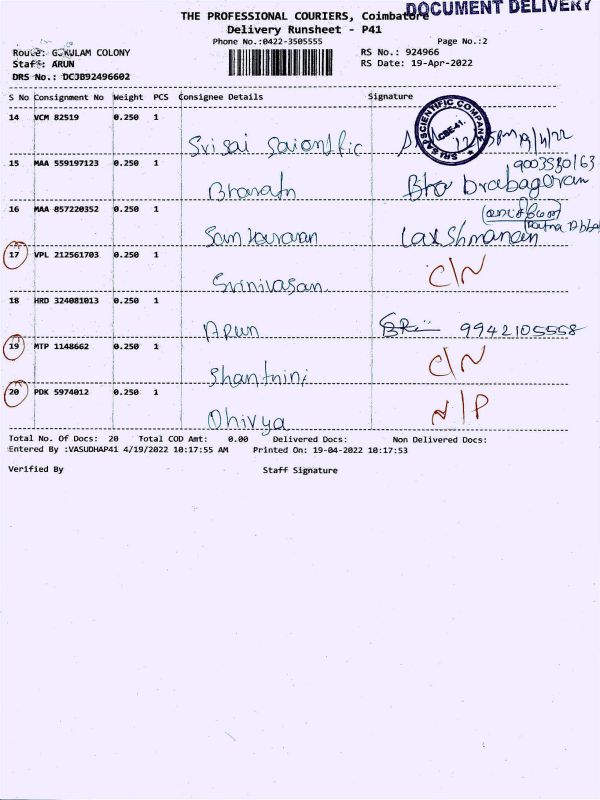 DOCUMENT DELIVERY
THE PROFESSIONAL COURIERS, Coimbatore
Delivery Runsheet - P41
Phone No.:0422-3505555 Page No.:2
Route: GOKULAM COLONY RS No.: 924966
Staff: ARUN RS Date: 19-Apr-2022
DRS No.: DCJB92496602
S No Consignment No Weight PCS Consignee Details Signature
14 VCM 82519 0.250 1
Sri sai Saiontfic 19/4/22
SRI SAI SCIENTIFIC COMPANY
CBE-41.
15 MAA 559197123 0.250 1 9003580163
Bharath
16 MAA 857220352 0.250 1
Sankaravan Laxshmanan
17 VPL 212561703 0.250 1 C/N
Srinivasan
18 HRD 324081013 0.250 1
Arun 9942105558
19 MTP 1148662 0.250 1 C/N
Shantnini
20 PDK 5974012 0.250 1 N/P
Dhivya
Total No. Of Docs: 20 Total COD Amt: 0.00 Delivered Docs: Non Delivered Docs:
Entered By :VASUDHAP41 4/19/2022 10:17:55 AM Printed On: 19-04-2022 10:17:53
Verified By Staff Signature